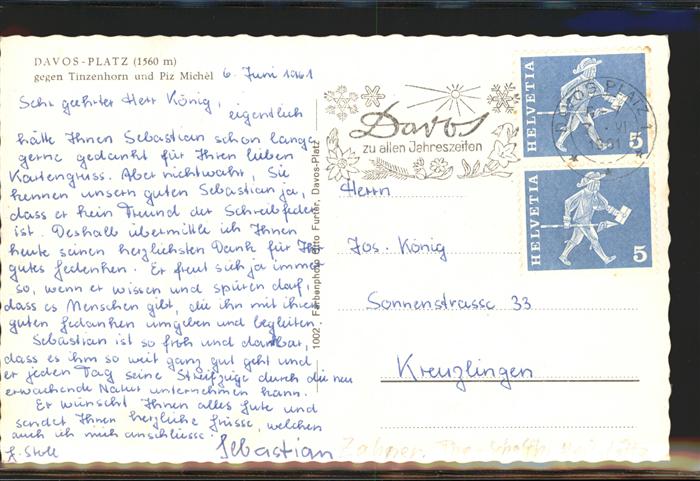 DAVOS-PLATZ (1560 m)
gegen Tinzenhorn und Piz Michèl
6. Juni 1961
Sehr geehrter Herr König,
eigentlich
hätte Ihnen Sebastian schon lange
gerne gedankt für Ihren lieben
Kartengruss. Aber nicht wahr, Sie
kennen unsern guten Sebastian ja,
dass er kein Freund der Schreibfeder
ist. Deshalb übermittle ich Ihnen
heute seinen herzlichsten Dank für Ihr
gutes Gedenken. Er freut sich ja immer
so, wenn er wissen und spüren darf,
dass es Menschen gibt, die ihn mit ihren
guten Gedanken umgeben und begleiten.
Sebastian ist so froh und dankbar,
dass es ihm so weit ganz gut geht und
er jeden Tag seine Streifzüge durch die neu
erwachende Natur unternehmen kann.
Er wünscht Ihnen alles Gute und
sendet Ihnen herzliche Grüsse, welchen
auch ich mich anschliesse.
Sebastian
1002 Farbenphoto Otto Furter, Davos-Platz
Davos
zu allen Jahreszeiten
DAVOS PLATZ 1
HELVETIA
5
HELVETIA
5
Herrn
Jos. König
Sonnenstrasse 33
Kreuzlingen